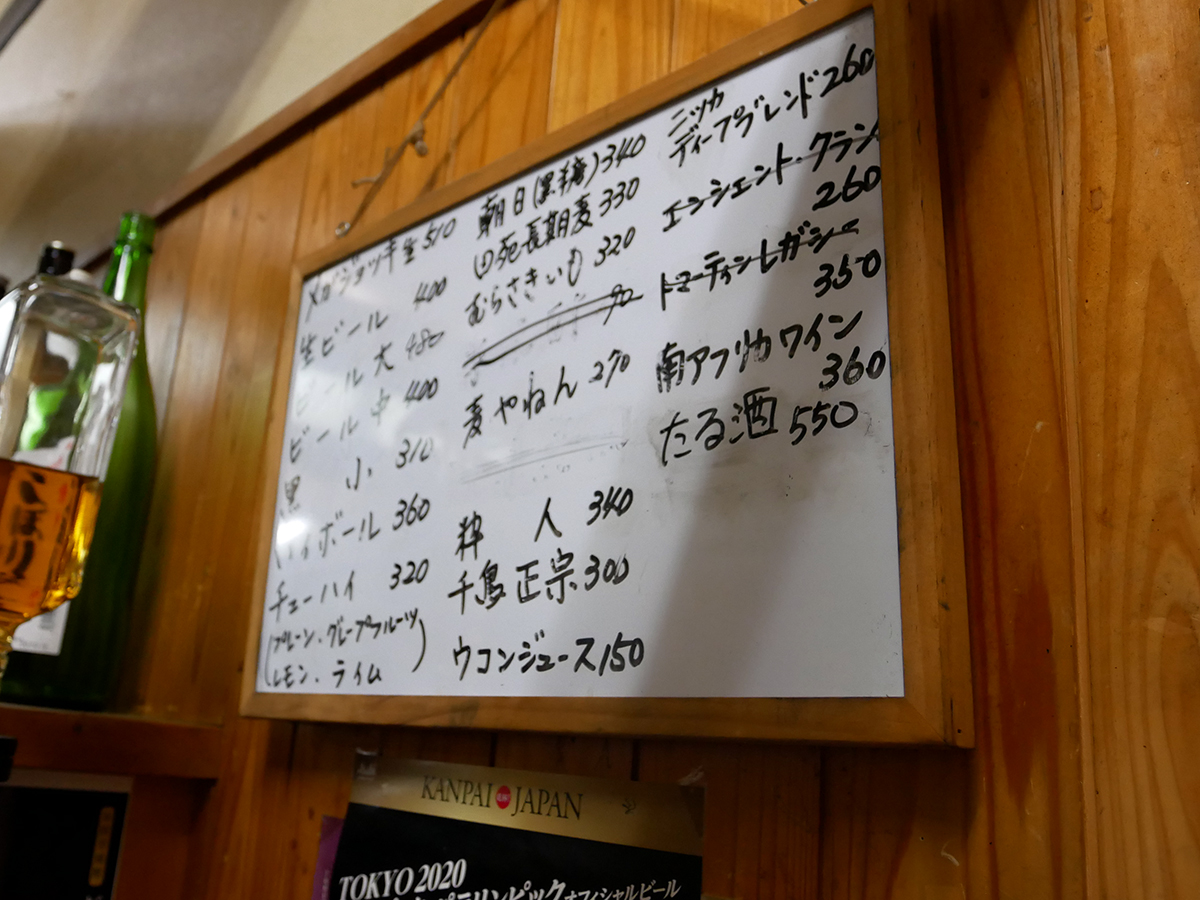 メガジョッキ生 510
生ビール 400
ビール大 480
ビール中 400
黒 小 310
ハイボール 360
チューハイ 320
(プレーン・グレープフルーツ
レモン・ライム)
朝日(黒糖)340
山ノ宛長期麦 330
むらさきいも 320
70
麦やねん 270
粋人 340
千鳥正宗 300
ウコンジュース 150
ニッカ
ディープブレンド 260
エンシェント・クラン
260
トマーティンレガシー
350
南アフリカワイン
360
たる酒 550
こほり
KANPAI JAPAN
TOKYO 2020
パラリンピックオフィシャルビール